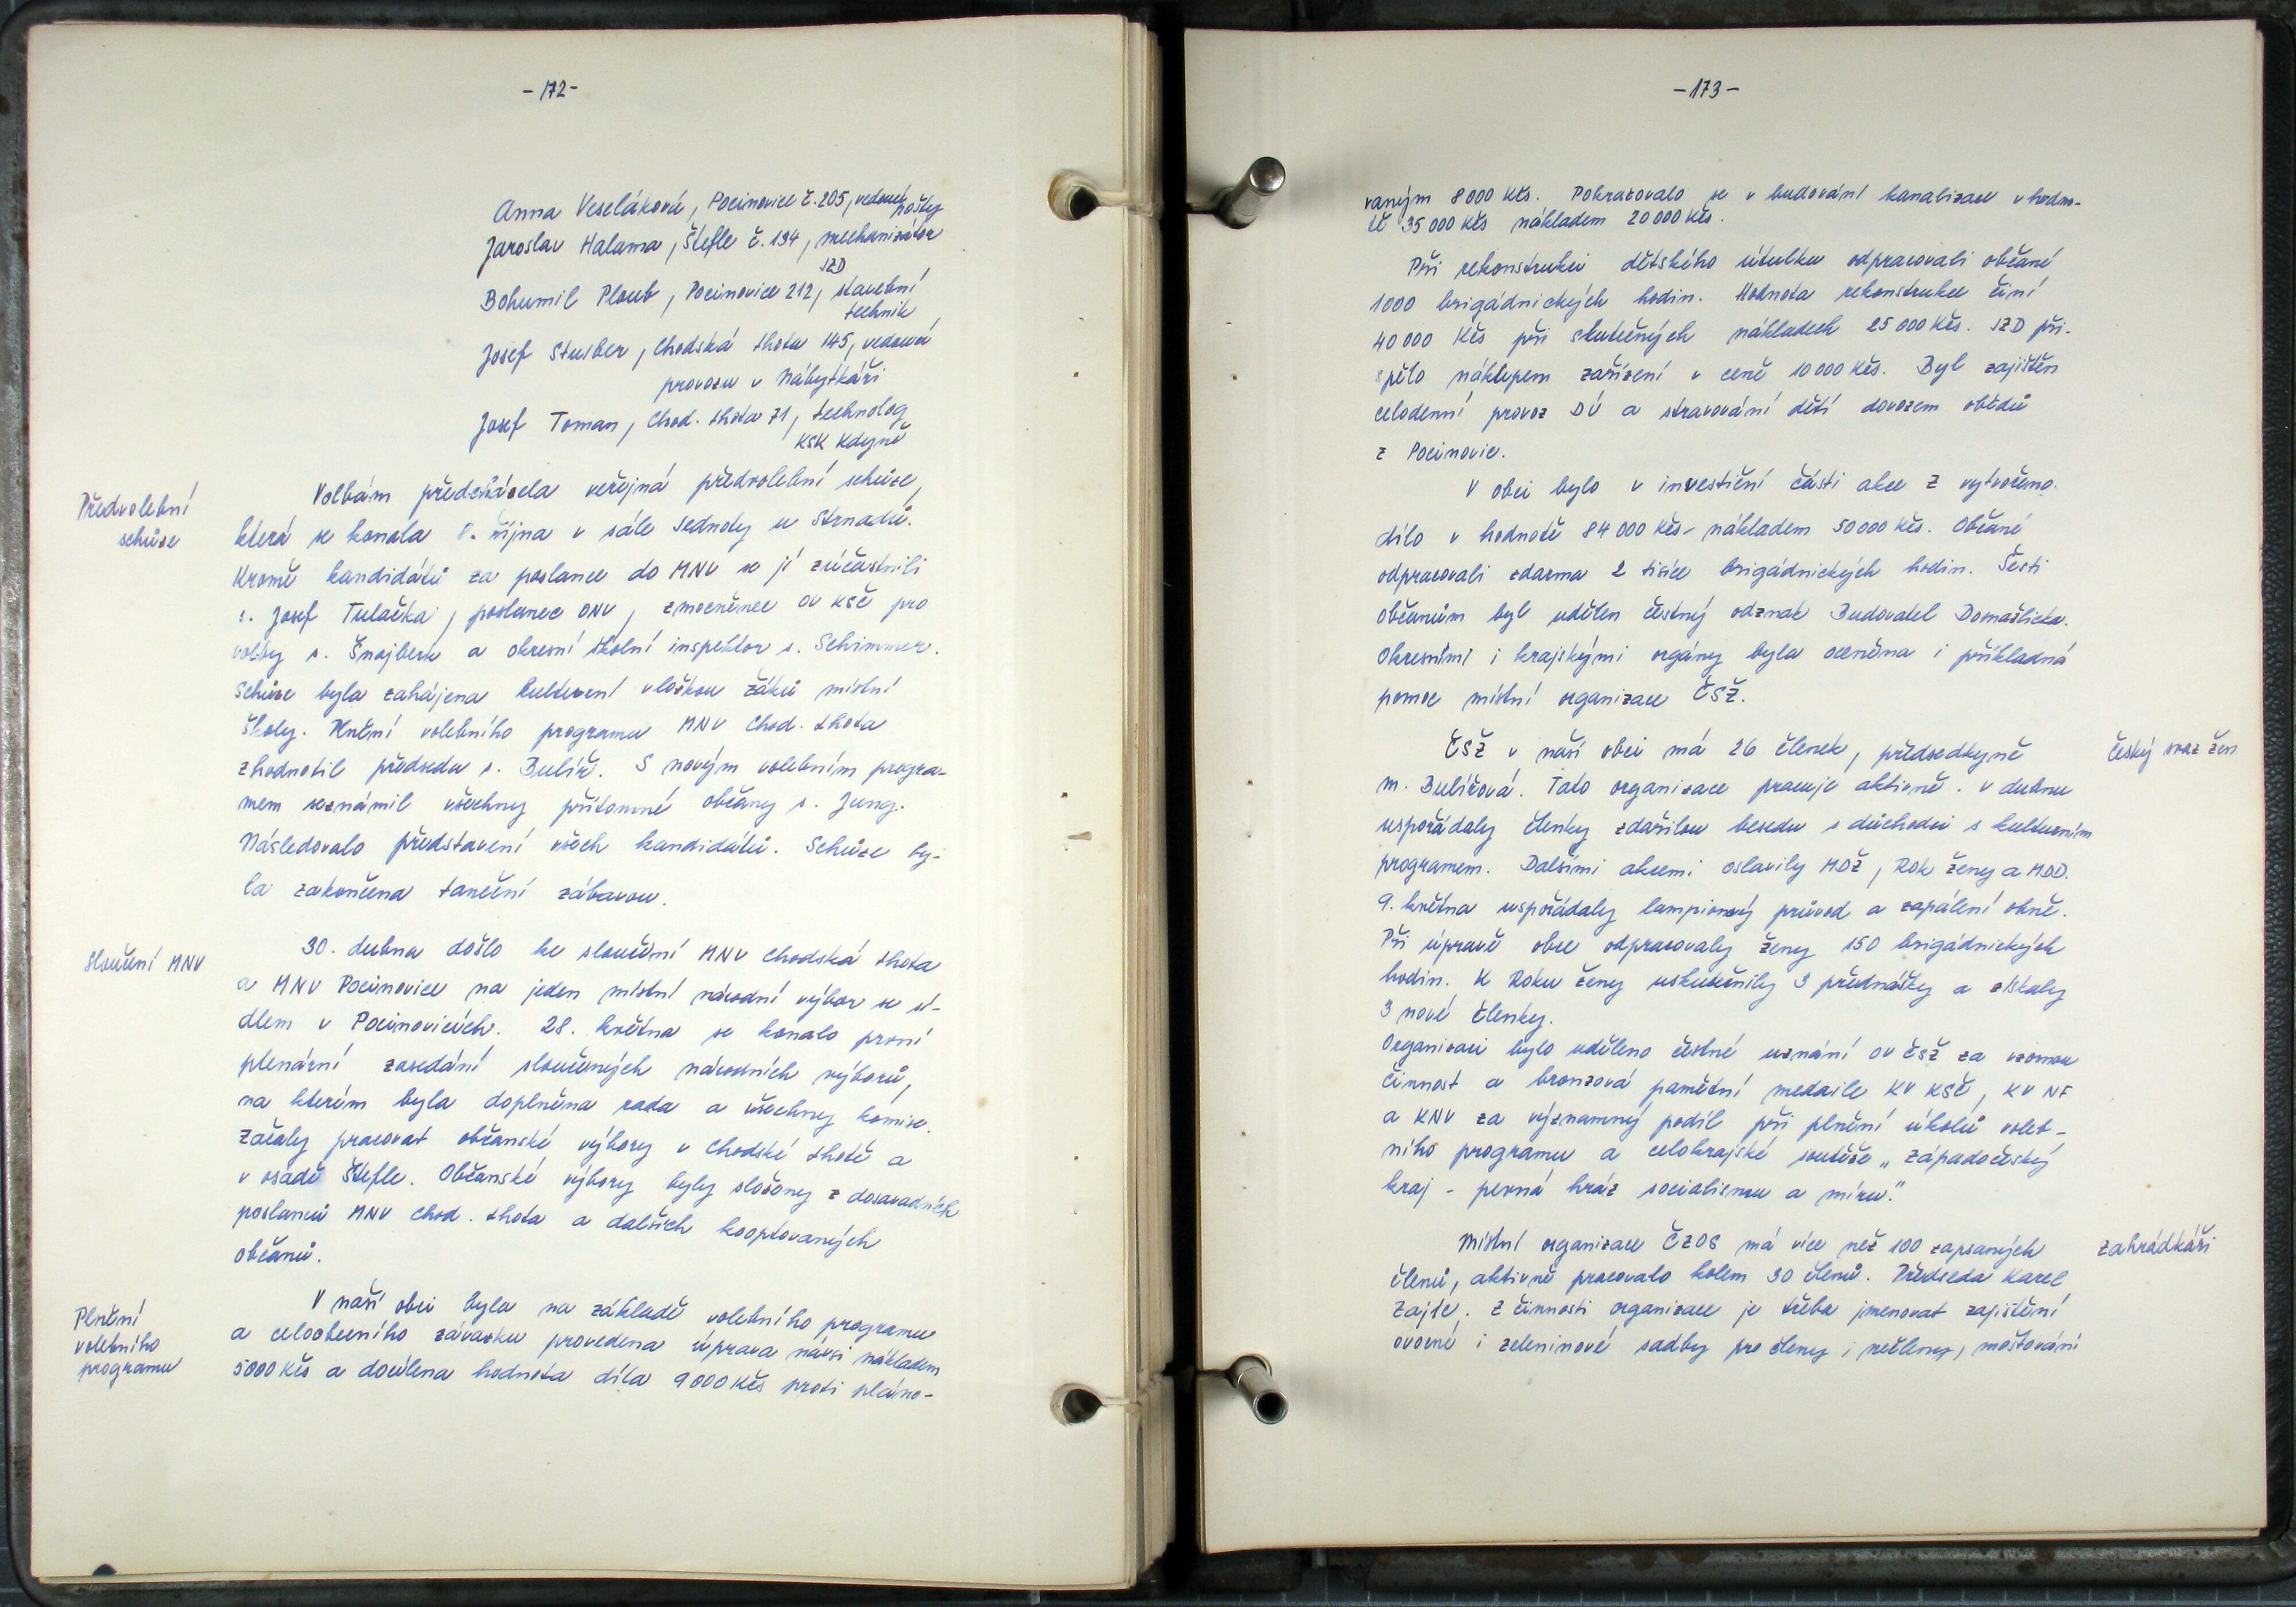 -172-
Anna Veseláková, Pocinovice č. 205, vedoucí
pošty
Jaroslav Halama, Štefle č. 134, mechanizátor
JZD
Bohumil Ploub, Pocinovice 212, stavební
technik
Josef Stuiber, Chodská Lhota 145, vedoucí
provozu v Nábytkáři
Josef Toman, Chod. Lhota 71, technolog
KSK Kdyně
Předvolební
schůze
Volbám předcházela veřejná předvolební schůze,
která se konala 8. října v sále Jednoty u Strnadů.
Kromě kandidátů za poslance do MNV se jí zúčastnili
s. Josef Tulačka, poslanec ONV, zmocněnec OV KSČ pro
volby s. Šnajberk a okresní školní inspektor s. Schimmer.
Schůze byla zahájena kulturní vložkou žáků místní
školy. Plnění volebního programu MNV Chod. Lhota
zhodnotil předseda s. Bulíř. S novým volebním progra-
mem seznámil všechny přítomné občany s. Jung.
Následovalo představení všech kandidátů. Schůze by-
la zakončena taneční zábavou.
Sloučení MNV
30. dubna došlo ke sloučení MNV Chodská Lhota
a MNV Pocinovice na jeden místní národní výbor se sí-
dlem v Pocinovicích. 28. května se konalo první
plenární zasedání sloučených národních výborů,
na kterém byla doplněna rada a všechny komise.
Začaly pracovat občanské výbory v Chodské Lhotě a
v osadě Štefle. Občanské výbory byly složeny z dosavadních
poslanců MNV Chod. Lhota a dalších kooptovaných
občanů.
Plnění
volebního
programu
V naší obci byla na základě volebního programu
a celoobecního závazku provedena úprava návsi nákladem
5000 Kčs a docílena hodnota díla 9000 Kčs proti pláno-
-173-
vaným 8000 Kčs. Pokračovalo se v budování kanalizace v hodno-
tě 35 000 Kčs nákladem 20 000 Kčs.
Při rekonstrukci dětského útulku odpracovali občané
1000 brigádnických hodin. Hodnota rekonstrukce činí
40 000 Kčs při skutečných nákladech 25 000 Kčs. JZD při-
spělo nákupem zařízení v ceně 10 000 Kčs. Byl zajištěn
celodenní provoz DÚ a stravování dětí dovozem obědů
z Pocinovic.
V obci bylo v investiční části akce Z vytvořeno
dílo v hodnotě 84 000 Kčs - nákladem 50 000 Kčs. Občané
odpracovali zdarma 2 tisíce brigádnických hodin. Šesti
občanům byl udělen čestný odznak Budovatel Domažlicka.
Okresními i krajskými orgány byla oceněna i příkladná
pomoc místní organizace ČSŽ.
Český svaz žen
ČSŽ v naší obci má 26 členek, předsedkyně
m. Bulířová. Tato organizace pracuje aktivně. V dubnu
uspořádaly členky zdařilou besedu s důchodci s kulturním
programem. Dalšími akcemi oslavily MDŽ, Rok ženy a MDD.
9. května uspořádaly lampionový průvod a zapálení ohně.
Při úpravě obce odpracovaly ženy 150 brigádnických
hodin. K Roku ženy uskutečnily 3 přednášky a získaly
3 nové členky.
Organizaci bylo uděleno čestné uznání OV ČSŽ za vzornou
činnost a bronzová pamětní medaile KV KSČ, KV NF
a KNV za významný podíl při plnění úkolů voleb-
ního programu a celokrajské soutěže „Západočeský
kraj - pevná hráz socialismu a míru."
Zahrádkáři
Místní organizace ČZOS má více než 100 zapsaných
členů, aktivně pracovalo kolem 30 členů. Předseda Karel
Zajíc. Z činnosti organizace je třeba jmenovat zajištění
ovocné i zeleninové sadby pro členy i nečleny, moštování